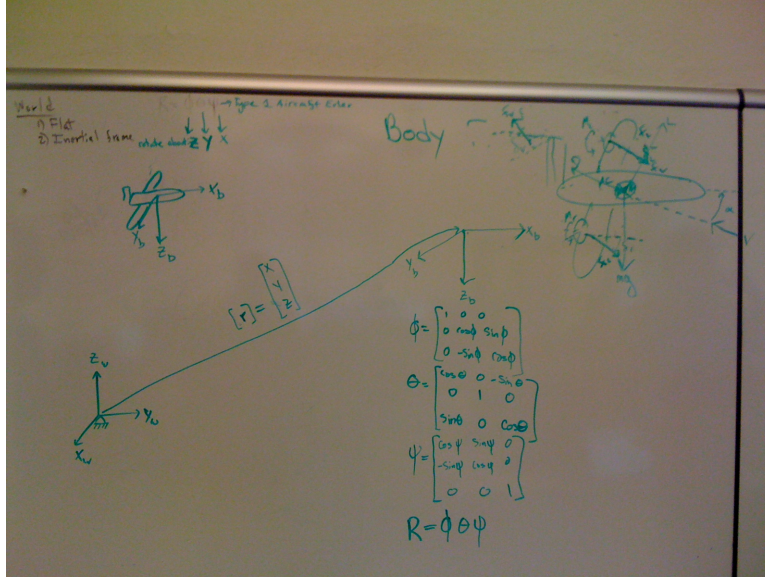 World
1) Flat
2) Inertial frame
→ Type 1 Aircraft Euler
rotate about Z Y X
Body
X_b
Y_b
Z_b
[r] = [X Y Z]
X_b
Y_b
Z_b
mg
V
α
Z_w
Y_w
X_w
ϕ = [1 0 0
0 cosϕ sinϕ
0 -sinϕ cosϕ]
θ = [cosθ 0 -sinθ
0 1 0
sinθ 0 cosθ]
ψ = [cosψ sinψ 0
-sinψ cosψ 0
0 0 1]
R = ϕθψ